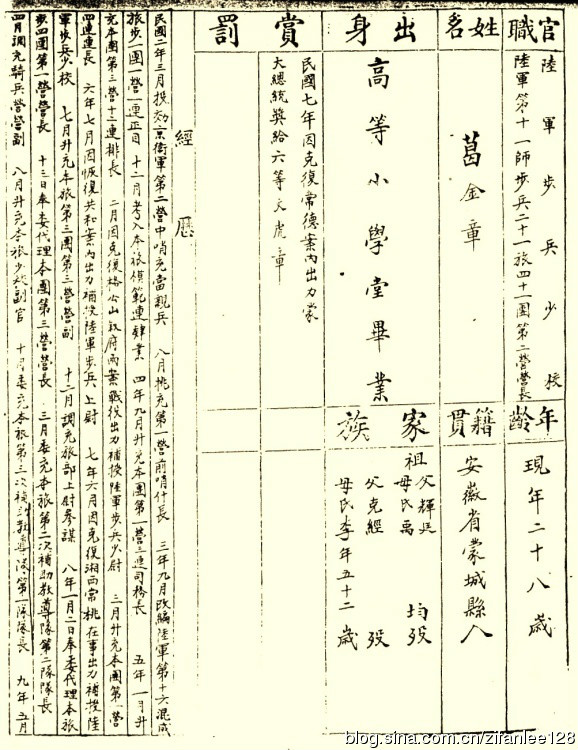 官職
陸軍步兵少校
陸軍第十一師步兵二十一旅四十一團第二營營長
姓名
葛金章
出身
高等小學堂畢業
賞罰
民國七年因克復常德案內出力蒙
大總統獎給六等文虎章
年齡
現年二十八歲
籍貫
安徽省蒙城縣人
家族
祖父輝廷
母氏禹
均歿
父克經歿
母氏李年五十二歲
經歷
民國二年三月投効京衛軍第二營中哨充當親兵 八月挑充第一營前哨什長 三年九月改編陸軍第十六混成
旅步一團一營一連正目 十二月考入本旅模範連肄業 四年九月升充本團第一營三連司務長 五年一月升
充本團第三營十二連排長 二月因克復 兩案戰役出力補授陸軍步兵少尉 三月升充本團第一營
四連連長 六年七月因恢復共和案內出力補授陸軍步兵上尉 七年六月因克復湘西常桃在事出力補授陸
軍步兵少校 七月升充本旅第三團第三營營副 十二月調充旅部上尉參謀 八年一月二日奉委代理本旅
步四團第一營營長 十三日奉委代理本團第三營營長 三月委充本旅第二次補助教導隊第二隊隊長
四月調充騎兵營營副 八月升充本旅少校副官 十月委充本旅第三次補助教導隊第一隊隊長 九年五月
blog.sina.com.cn/zifanlee128